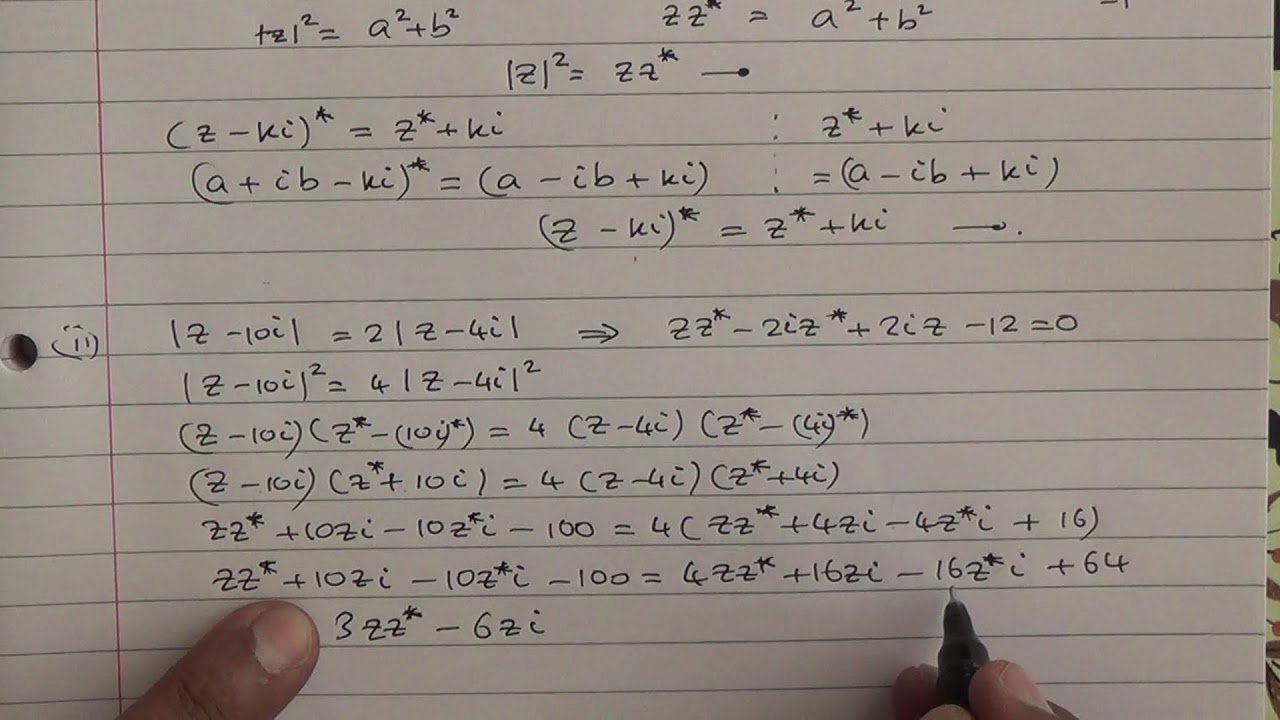 |z|² = a²+b² zz* = a²+b² -1
|z|² = zz*
(z - ki)* = z* + ki : z* + ki
(a + ib - ki)* = (a - ib + ki) : = (a - ib + ki)
(z - ki)* = z* + ki
(ii) |z - 10i| = 2|z - 4i| ⇒ zz* - 2iz* + 2iz - 12 = 0
|z - 10i|² = 4|z - 4i|²
(z - 10i)(z* - (10i)*) = 4 (z - 4i) (z* - (4i)*)
(z - 10i) (z* + 10i) = 4 (z - 4i) (z* + 4i)
zz* + 10zi - 10z*i - 100 = 4(zz* + 4zi - 4z*i + 16)
zz* + 10zi - 10z*i - 100 = 4zz* + 16zi - 16z*i + 64
3zz* - 6zi